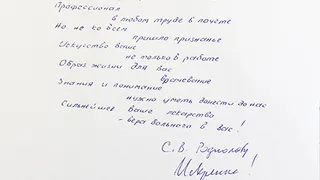 Профессионал
в любом труде в почете
Но не ко всем
пришло признанье
Искусство Ваше
не только в работе
Образ жизни для вас
врачевание
Знания и понимание
нужно уметь донести до нас
Сильнейшее Ваше лекарство
- вера больного в вас!
С. В.